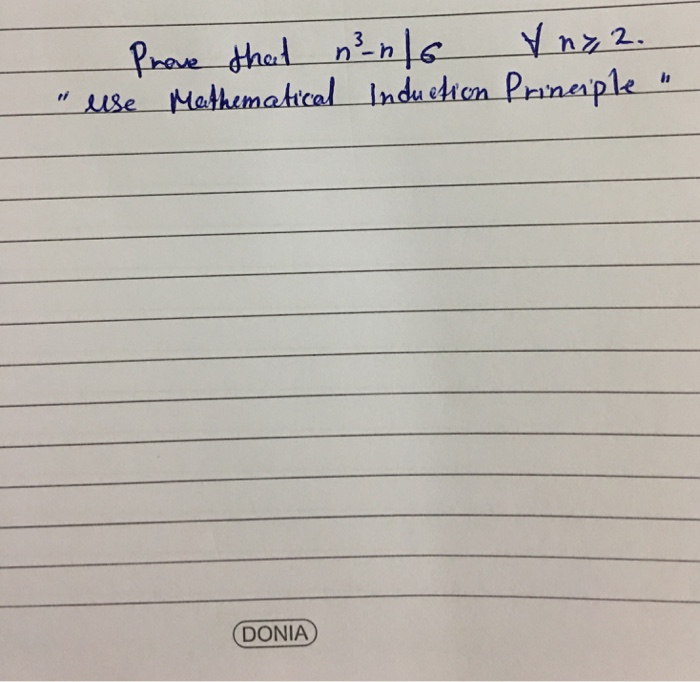 Prove that n³-n|6 ∀ n⩾2.
"use Mathematical Induction Principle"
DONIA